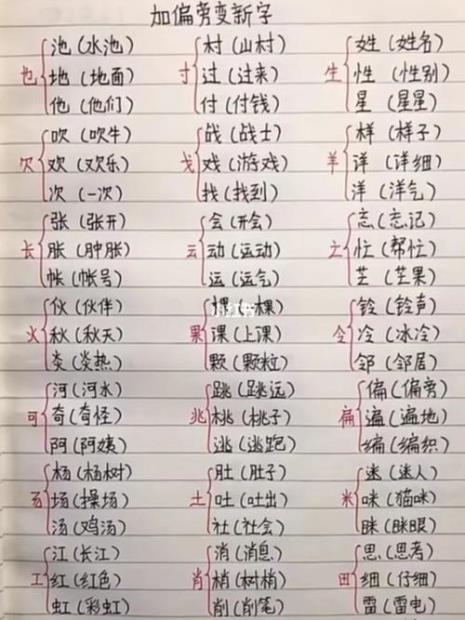 加偏旁变新字
池（水池） 村（山村） 姓（姓名）
也 地（地面） 寸 过（过来） 生 性（性别）
他（他们） 付（付钱） 星（星星）
吹（吹牛） 战（战士） 样（样子）
欠 欢（欢乐） 戈 戏（游戏） 羊 详（详细）
次（一次） 找（找到） 洋（洋气）
张（张开） 会（开会） 忘（忘记）
长 胀（肿胀） 云 动（运动） 亡 忙（帮忙）
帐（帐号） 运（运气） 芒（芒果）
伙（伙伴） 棵（一棵） 铃（铃声）
火 秋（秋天） 果 课（上课） 令 冷（冰冷）
炎（炎热） 颗（颗粒） 邻（邻居）
河（河水） 跳（跳远） 偏（偏旁）
可 奇（奇怪） 兆 桃（桃子） 扁 遍（遍地）
阿（阿姨） 逃（逃跑） 编（编织）
杨（杨树） 肚（肚子） 迷（迷人）
𠃓 场（操场） 土 吐（吐出） 米 咪（猫咪）
汤（鸡汤） 社（社会） 眯（眯眼）
江（长江） 消（消息） 思（思考）
工 红（红色） 肖 梢（树梢） 田 细（仔细）
虹（彩虹） 削（削笔） 雷（雷电）
小红书